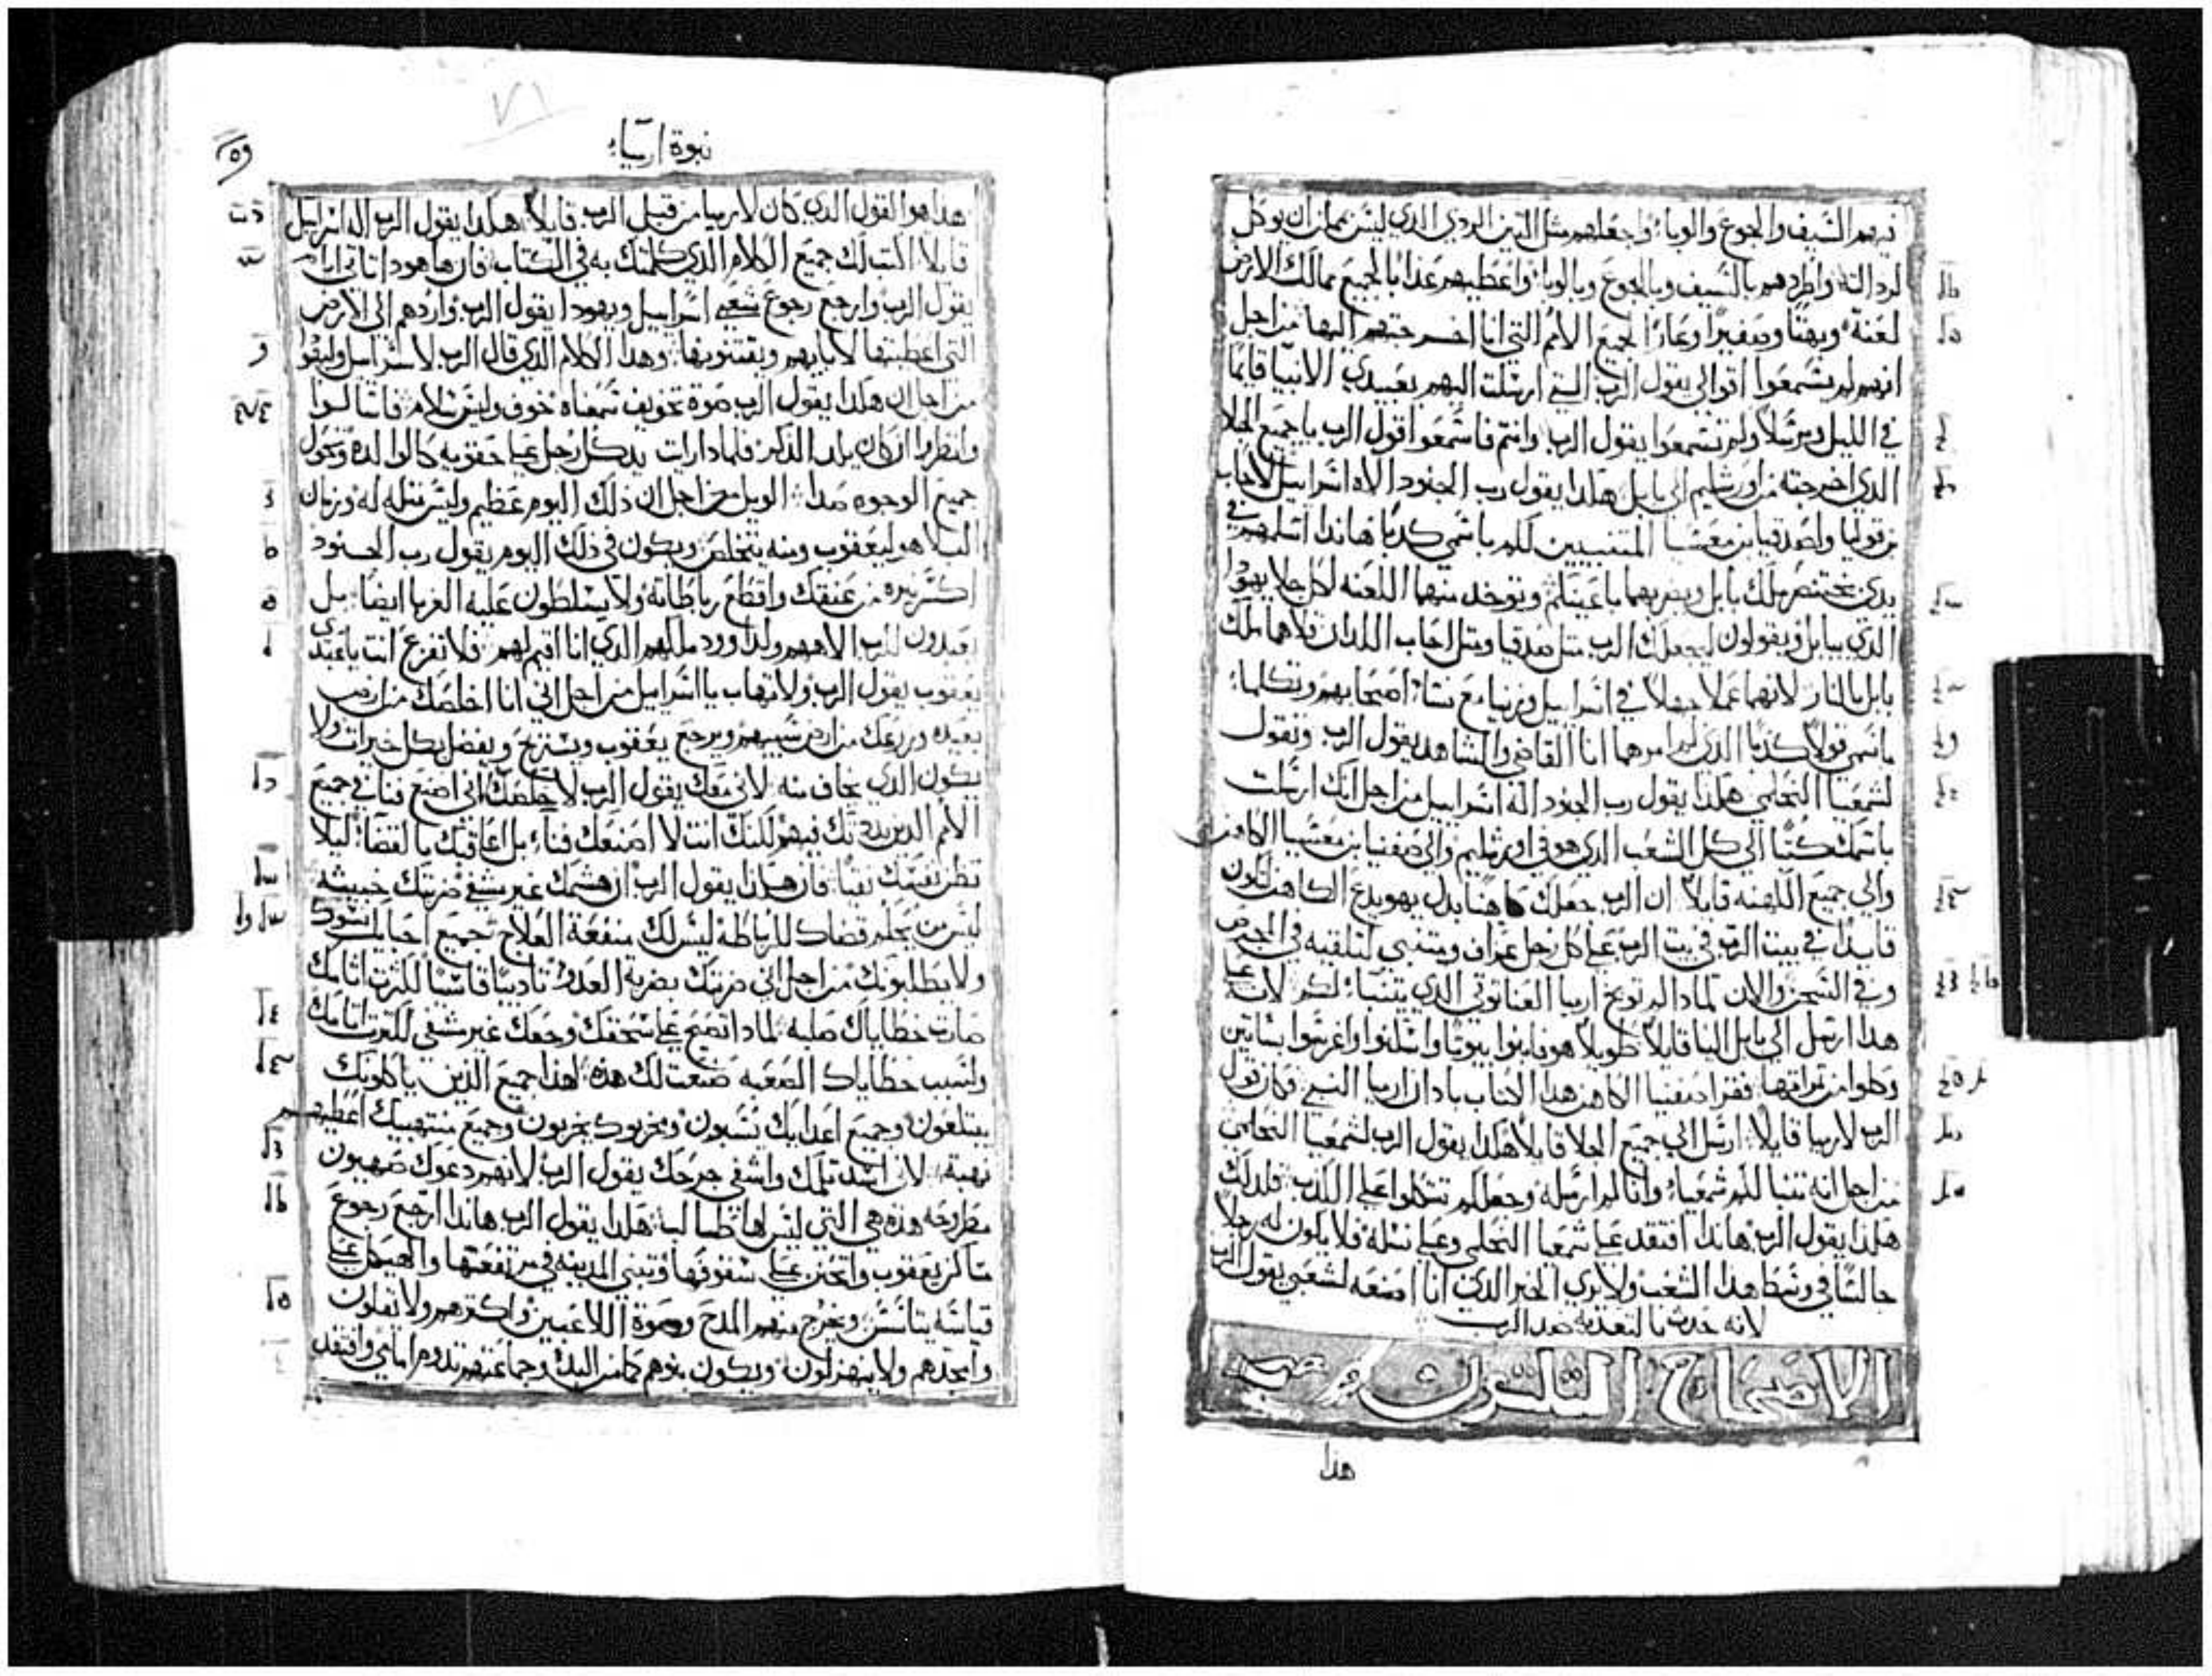 فيهم السيف والجوع والوباء واجعلهم مثل التين الردي الذي ليس يمكن ان يوكل
لرداته واطردهم بالسيف وبالجوع وبالوباء واعطيهم عذابا لجميع ممالك الارض
لعنة وبهتا وصفيرا وعارا لجميع الامم التي انا اخرجتهم اليها من اجل
انهم لم يسمعوا اقوالي يقول الرب التي ارسلت اليهم بعبيدي الانبيا قايما
في الليل ومرسلا ولم تسمعوا يقول الرب وانتم فاسمعوا قول الرب يا جميع الجلا
الذي اخرجته من اورشليم الي بابل هكذا يقول رب الجنود الاه اسراييل لاخاب
بن قوليا ولصدقيا بن معسيا المتنبيين لكم باسمي كدبا هاندا اسلمهم في
يدي بختنصر ملك بابل ويضربهما باعينكم ويوخد منهما اللعنه لكل جلا يهودا
الذي ببابل ويقولون ليجعلك الرب مثل صدقيا ومثل اخاب اللدان قلاهما ملك
بابل بالنار لانهما عملا جهلا في اسراييل وزنيا مع نسا اصحابهم وتكلما
باسمي قولا كدبا الذي لم امرهما انا القاضي والشاهد يقول الرب وتقول
لشمعيا النحلمي هكذا يقول رب الجنود اله اسراييل من اجل انك ارسلت
باسمك كتبا الي كل الشعب الذي هو في اورشليم والي صفنيا بن معسيا الكاهن
والي جميع الكهنه قايلا ان الرب جعلك كاهنا بدل يهويدع الكاهن لتكون
قايدا في بيت الرب علي كل رجل ومتنبي لتلقيه في الحبس
وفي السجن والان لمادا لم توبخ ارميا العناتوتي الذي يتنبا لكم لانه علي
هذا ارسل الي بابل الينا قايلا طويلا هو فابنوا بيوتا واسكنوا واغرسوا بساتين
وكلوا من تمراتها فقرا صفنيا الكاهن هدا الكتاب بادان ارميا النبي فكان قول
الرب لارميا قايلا ارسل الي جميع الجلا قايلا هكذا يقول الرب لشمعيا النحلمي
من اجل انه تنبا لكم شمعيا وانا لم ارسله وجعلكم تتكلوا علي الكدب فلدلك
هكذا يقول الرب هاندا افتقد علي شمعيا النحلمي وعلي نسله فلا يكون له رجلا
جالسا في وسط هدا الشعب ولا يري الخير الذي انا اصنعه لشعبي يقول الرب
لانه حدث بالتعديه ضد الرب
الاصحاح التلتون
هذا
نبوة ارمياء
٧١
هداهوا القول الدي كان لارميا من قبل الرب قايلا هكدا يقول الرب اله اسراييل
قايلا اكتب لك جميع الكلام الدي كلمتك به في الكتاب فان ها هودا تاتي ايام
يقول الرب وارجع رجوع شعبي اسراييل ويهودا يقول الرب واردهم الي الارض
التي اعطيتها لابايهم ويقتنونها وهدا الكلام الدي قال الرب لاسراييل وليهودا
من اجل ان هكدا يقول الرب صوة تخويف سمعناه خوف وليس سلام فاسالوا
وانظروا ان كان يلد الذكر فلمادا رايت يد كل رجل علي حقويه كالوالده وتحول
جميع الوجوه صدا الويل من اجل ان ذلك اليوم عظيم وليس مثله له وزمان
البلا هو ليعقوب ومنه يتخلص ويكون في ذلك اليوم يقول رب الجنود
اكسر نيره من عنقك واقطع رباطاته ولا يسلطون عليه الغربا ايضا بل
يعبدون للرب الاههم ولداوود ملكهم الدي انا اقيم لهم فلا تفزع انت يا عبدي
يعقوب يقول الرب ولا تهاب يا اسراييل من اجل اني انا اخلصك من ارض
بعيده وزرعك من ارض سبيهم ويرجع يعقوب ويستريح ويفضل بكل خيرات ولا
يكون الدي يخاف منه لاني معك يقول الرب لاخلصك اني اصنع فنا في جميع
الامم الدين بددتك فيهم لكنك انت لا اصنعك فناء بل اعاقبك بالقضا ليلا
تظن نفسك نقيا فان هكدا يقول الرب ان هشمك غير يشفي ضربتك خبيثه
ليس من يحكم قضاك للرباطة ليس لك منفعة العلاج جميع احبايك نسوك
ولا يطلبونك من اجل اني ضربتك بضربة العدو تاديبا قاسيا لكثرت اثامك
صارت خطاياك صلبه لمادا تصيح علي سحقك وجعك غير مشفي لكثرت اثامك
ولسبب خطاياك الصعبه صنعت لك هده لهذا جميع الذين ياكلونك
يبتلعون وجميع اعدايك يسبون ومخربوك يخربون وجميع منتهبيك اعطيهم
نهبة لان اشد تلمك واشفي جرحك يقول الرب لانهم دعوك صهيون
مطروحه هذه هي التي ليس لها طالبا هكدا يقول الرب هاندا ارجع رجوع
مساكن يعقوب واتحنن علي سقوفها وتبني المدينه في مرتفعتها والهيكل علي
قياسه يتاسس ويخرج منهم المدح وصوة اللاعبين واكثرهم ولا يقلون
وامجدهم ولا ينهزلون ويكون بنوهم كما من البدء وجماعتهم تدوم امامي وافتقد